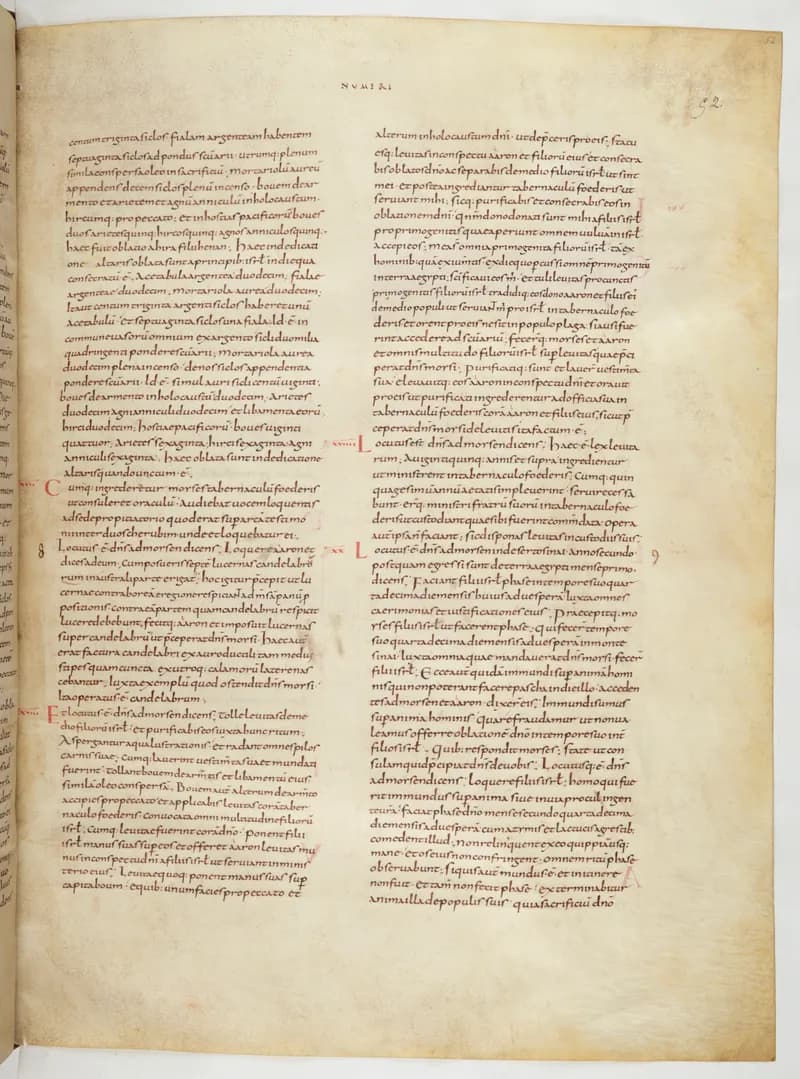 NUMERI
92.
centum triginta siclos fialam argenteam habentem
septuaginta siclos ad pondus scūarii · utrumq; plenum
simila conspersa oleo in sacrificiū · mortariolū aureū
appendens decem siclos plenū incenso · bouem de ar
mento et arietem et agnū anniculū in holocaustum ·
hircumq; pro peccato · et in hostias pacificorū boues
duos arietes quinq; hircos quinq; agnos anniculos quinq; ·
haec fuit oblatio ahira filii henan · Haec in dedicati
one altaris oblata sunt a principib; isrł in die qua
consecratū ē · Acetabula argentea duodecim · fialae
argenteae duodecim · mortariola aurea duodecim ·
Ita ut centum triginta argenti siclos haberet unū
acetabulū · et septuaginta siclos una fiala · Id ē in
commune uasorū omnium ex argento sicli duo milia
quadringenti pondere scūarii · mortariola aurea
duodecim plena incenso · denos siclos appendentia
pondere scūarii · Id ē simul auri sicli centū uiginti ·
boues de armento in holocaustū duodecim · Arietes
duodecim agni anniculi duodecim et libamenta eorū
hirci duodecim · hostiae pacificorū boues uiginti
quattuor · Arietes sexaginta hirci sexaginta · agni
anniculi sexaginta · Haec oblata sunt in dedicatione
altaris quando unctum ē ·
Cumq; ingrederetur morses tabernaculū foederis
ut consuleret oraculū · Audiebat uocem loquentis
ad se de propitiatorio quod erat supra arcā testimo
nii inter duos cherubim unde et loquebatur ei ·
Locutus ē dn̄s ad morsen dicens · Loquere aaron et
dices ad eum · Cum posueris septē lucernas candelabrū
in australi parte erigat · hoc igitur p̄cipit ut lu
cernae contra borea e regione respiciant ad mēsā panū p
positionis contra eā partem quam candelabrū respicit
lucere debebunt · fecitq; aaron et imposuit lucernas
super candelabrū ut p̄ceperat dn̄s morsi · Haec aut
erat factura candelabri ex auro ductili tam medius
stipes quam cuncta ex utroq; calamorū latere nas
cebantur · Iuxta exemplū quod ostendit dn̄s morsi ·
Ita operatus ē candelabrum ·
Et locutus ē dn̄s ad morsen dicens · tolle leuitas de me
dio filiorū isrł · et purificabis eos iuxta hunc ritum ·
Aspergantur aqua lustrationis et radant omnes pilos
carnis suae · Cumq; lauerint uestim̄ta sua et mundati
fuerint · tollant bouem de arm̄tis et libamentū eius
similā oleo conspersā · Bouem aut alterum de arm̄to
accipies pro peccato et applicabis leuitas corā taber
naculo foederis · conuocata omni multitudine filiorū
isrł · Cumq; leuitae fuerint corā dn̄o · ponent filii
isrł manus suas sup eos et offeret aaron leuitas mu
nus in conspectu dn̄i a filiis isrł ut seruiant in minis
terio eius · Leuitae quoq; ponent manus suas sup
capita boum · e quib; unum facies pro peccato et
alterum in holocaustum dn̄i · ut dep̄ceris pro eis · statu
esq; leuitas in conspectu aaron et filiorū eius et consecra
bis oblatos dn̄o ac separabis de medio filiorū isrł ut sint
mei · et postea ingrediantur tabernaculū foederis ut
seruiant mihi · sicq; purificabis et consecrabis eos in
oblationem dn̄i · qn̄m dono donati sunt mihi a filiis isrł
pro primogenitis quae aperiunt omnem uuluā in isrł
accepi eos · mea sunt omnia primogenita filiorū isrł tā ex
hominib; quā ex iumtis · ex die quo percussi omnē primogenitū
in terra aegypti · scificaui eos m̄ · et tuli leuitas pro cunctis
primogenitis filiorū isrł tradidiq; eos dono aaron et filiis ei
de medio populi ut seruiant m̄ pro isrł in tabernaculo foe
deris et orent pro eis ne sit in populo plaga · si ausi fue
rint accedere ad scūariū · fecerq; morses et aaron
et omnis multitudo filiorū isrł sup leuitas quae p̄ce
perat dn̄s morsi · Purificatiq; sunt et lauer uestim̄ta
sua · eleuauitq; eos aaron in conspectu dn̄i et orauit
pro eis ut purificati ingrederentur ad officia sua in
tabernaculū foederis corā aaron et filiis eius · sicut p̄
ceperat dn̄s morsi de leuitis ita factum ē ·
Locutus est dn̄s ad morsen dicens · Haec ē lex leuita
rum · A uiginti quinq; annis et supra ingredientur
ut ministrent in tabernaculo foederis · Cumq; quin
quagesimū annū aetatis impleuerint · seruire cessa
bunt · erq; ministri fratrū suorū in tabernaculo foe
deris ut custodiant quae sibi fuerint commdata · opera
aut ipsa n̄ faciant · sic dispones leuitas in custodiis suis ·
Locutus ē dn̄s ad morsen in deserto sinai · anno secundo
postquam egressi sunt de terra aegypti mense primo ·
dicens · Faciant filii isrł phase in tempore suo quar
ta decima die mensis huius ad uesperā iuxta omnes
caerimonias et iustificationes eius · Praecepitq; mo
rses filiis isrł ut facerent phase · qui fecer tempore
suo quarta decima die mensis ad uesperā in monte
sinai · Iuxta omnia quae mandauerat dn̄s morsi fecer
filii isrł · Ecce aut quidā immundi sup anima homi
nis qui non poterant facere pascha in die illo · acceden
tes ad morsen et aaron · dixer eis · Immundi sumus
sup anima hominis · quare fraudamur ut non ua
leamus offerre oblationē dn̄o in tempore suo int
filios isrł · Quib; respondit morses · state ut con
sulam quid p̄cipiat dn̄s de uobis · Locutusq; ē dn̄s
ad morsen dicens · Loquere filiis isrł · homo qui fue
rit immundus sup anima siue in uia procul in gen
te urā · faciat phase dn̄o mense secundo quarta decima
die mensis ad uesperā · cum azymis et lactucis agrestib;
comedent illud · non relinquent ex eo quippiā usq;
mane · et os eius non confringent · omnem ritū phase
obseruabunt · si quis aut mundus ē et in itinere
non fuit · et tam non fecit phase · exterminabitur
anima illa de populis suis · quia sacrificiū dn̄o